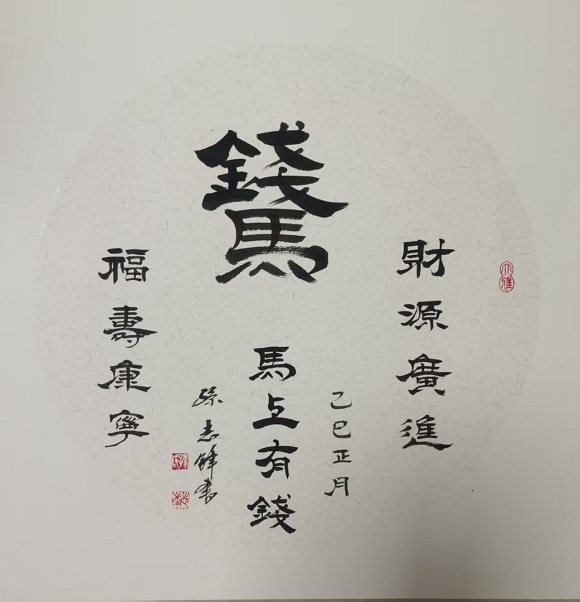 財源廣進
錢
馬
馬上有錢
乙巳正月
福壽康寧
孫志鋒書